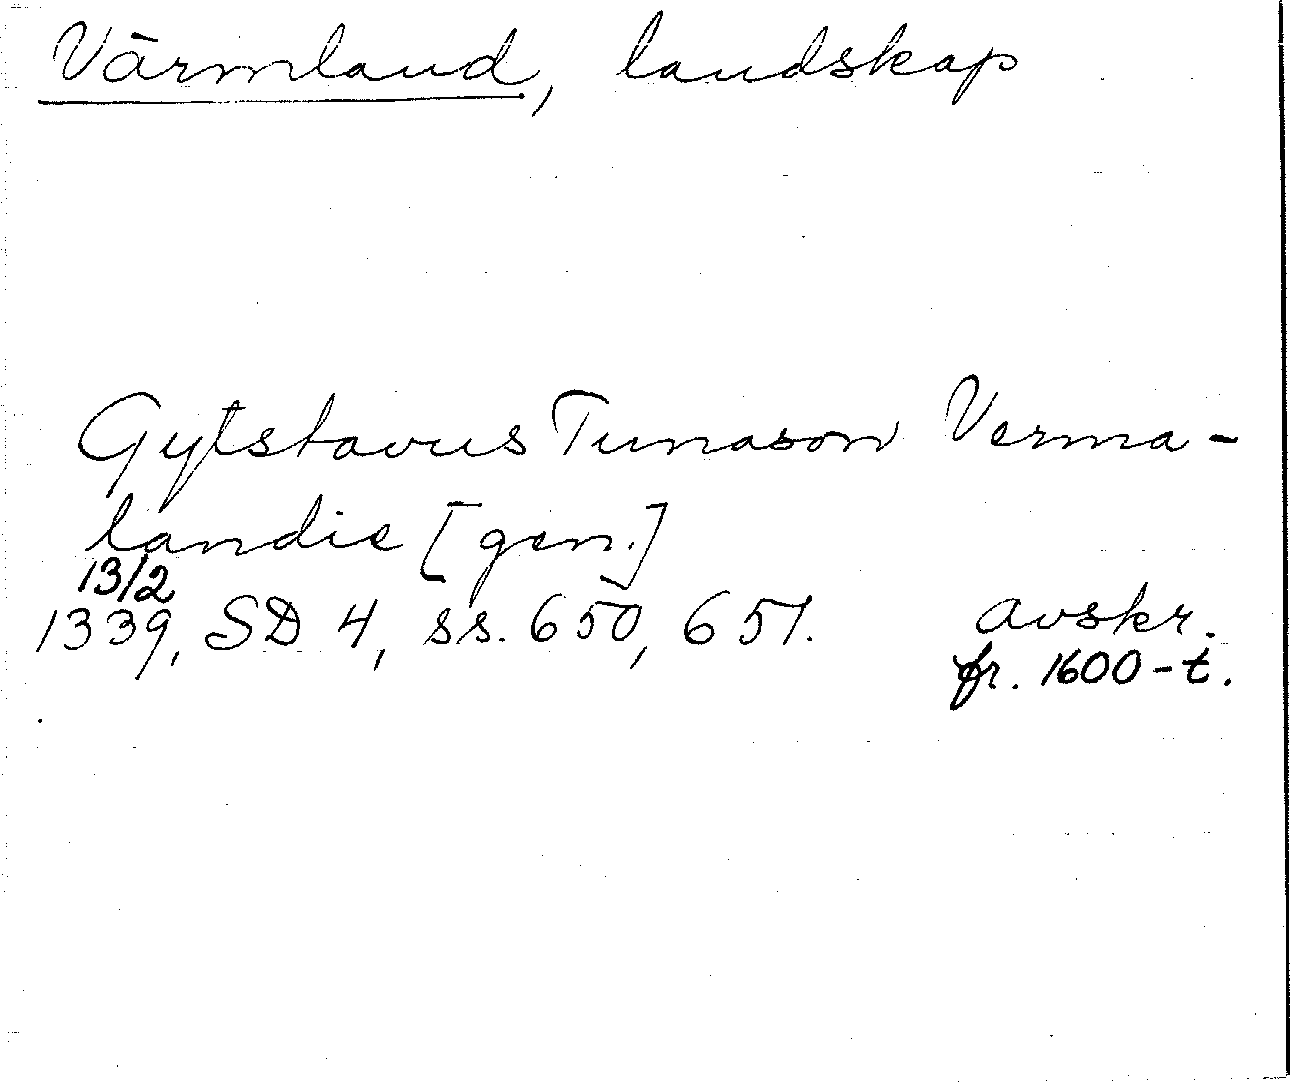 Värmland, landskap
Gytstavus Tunason Verma-
landie [gen.]
13/2
1339, SD 4, ss. 650, 651. avskr.
fr. 1600-t.